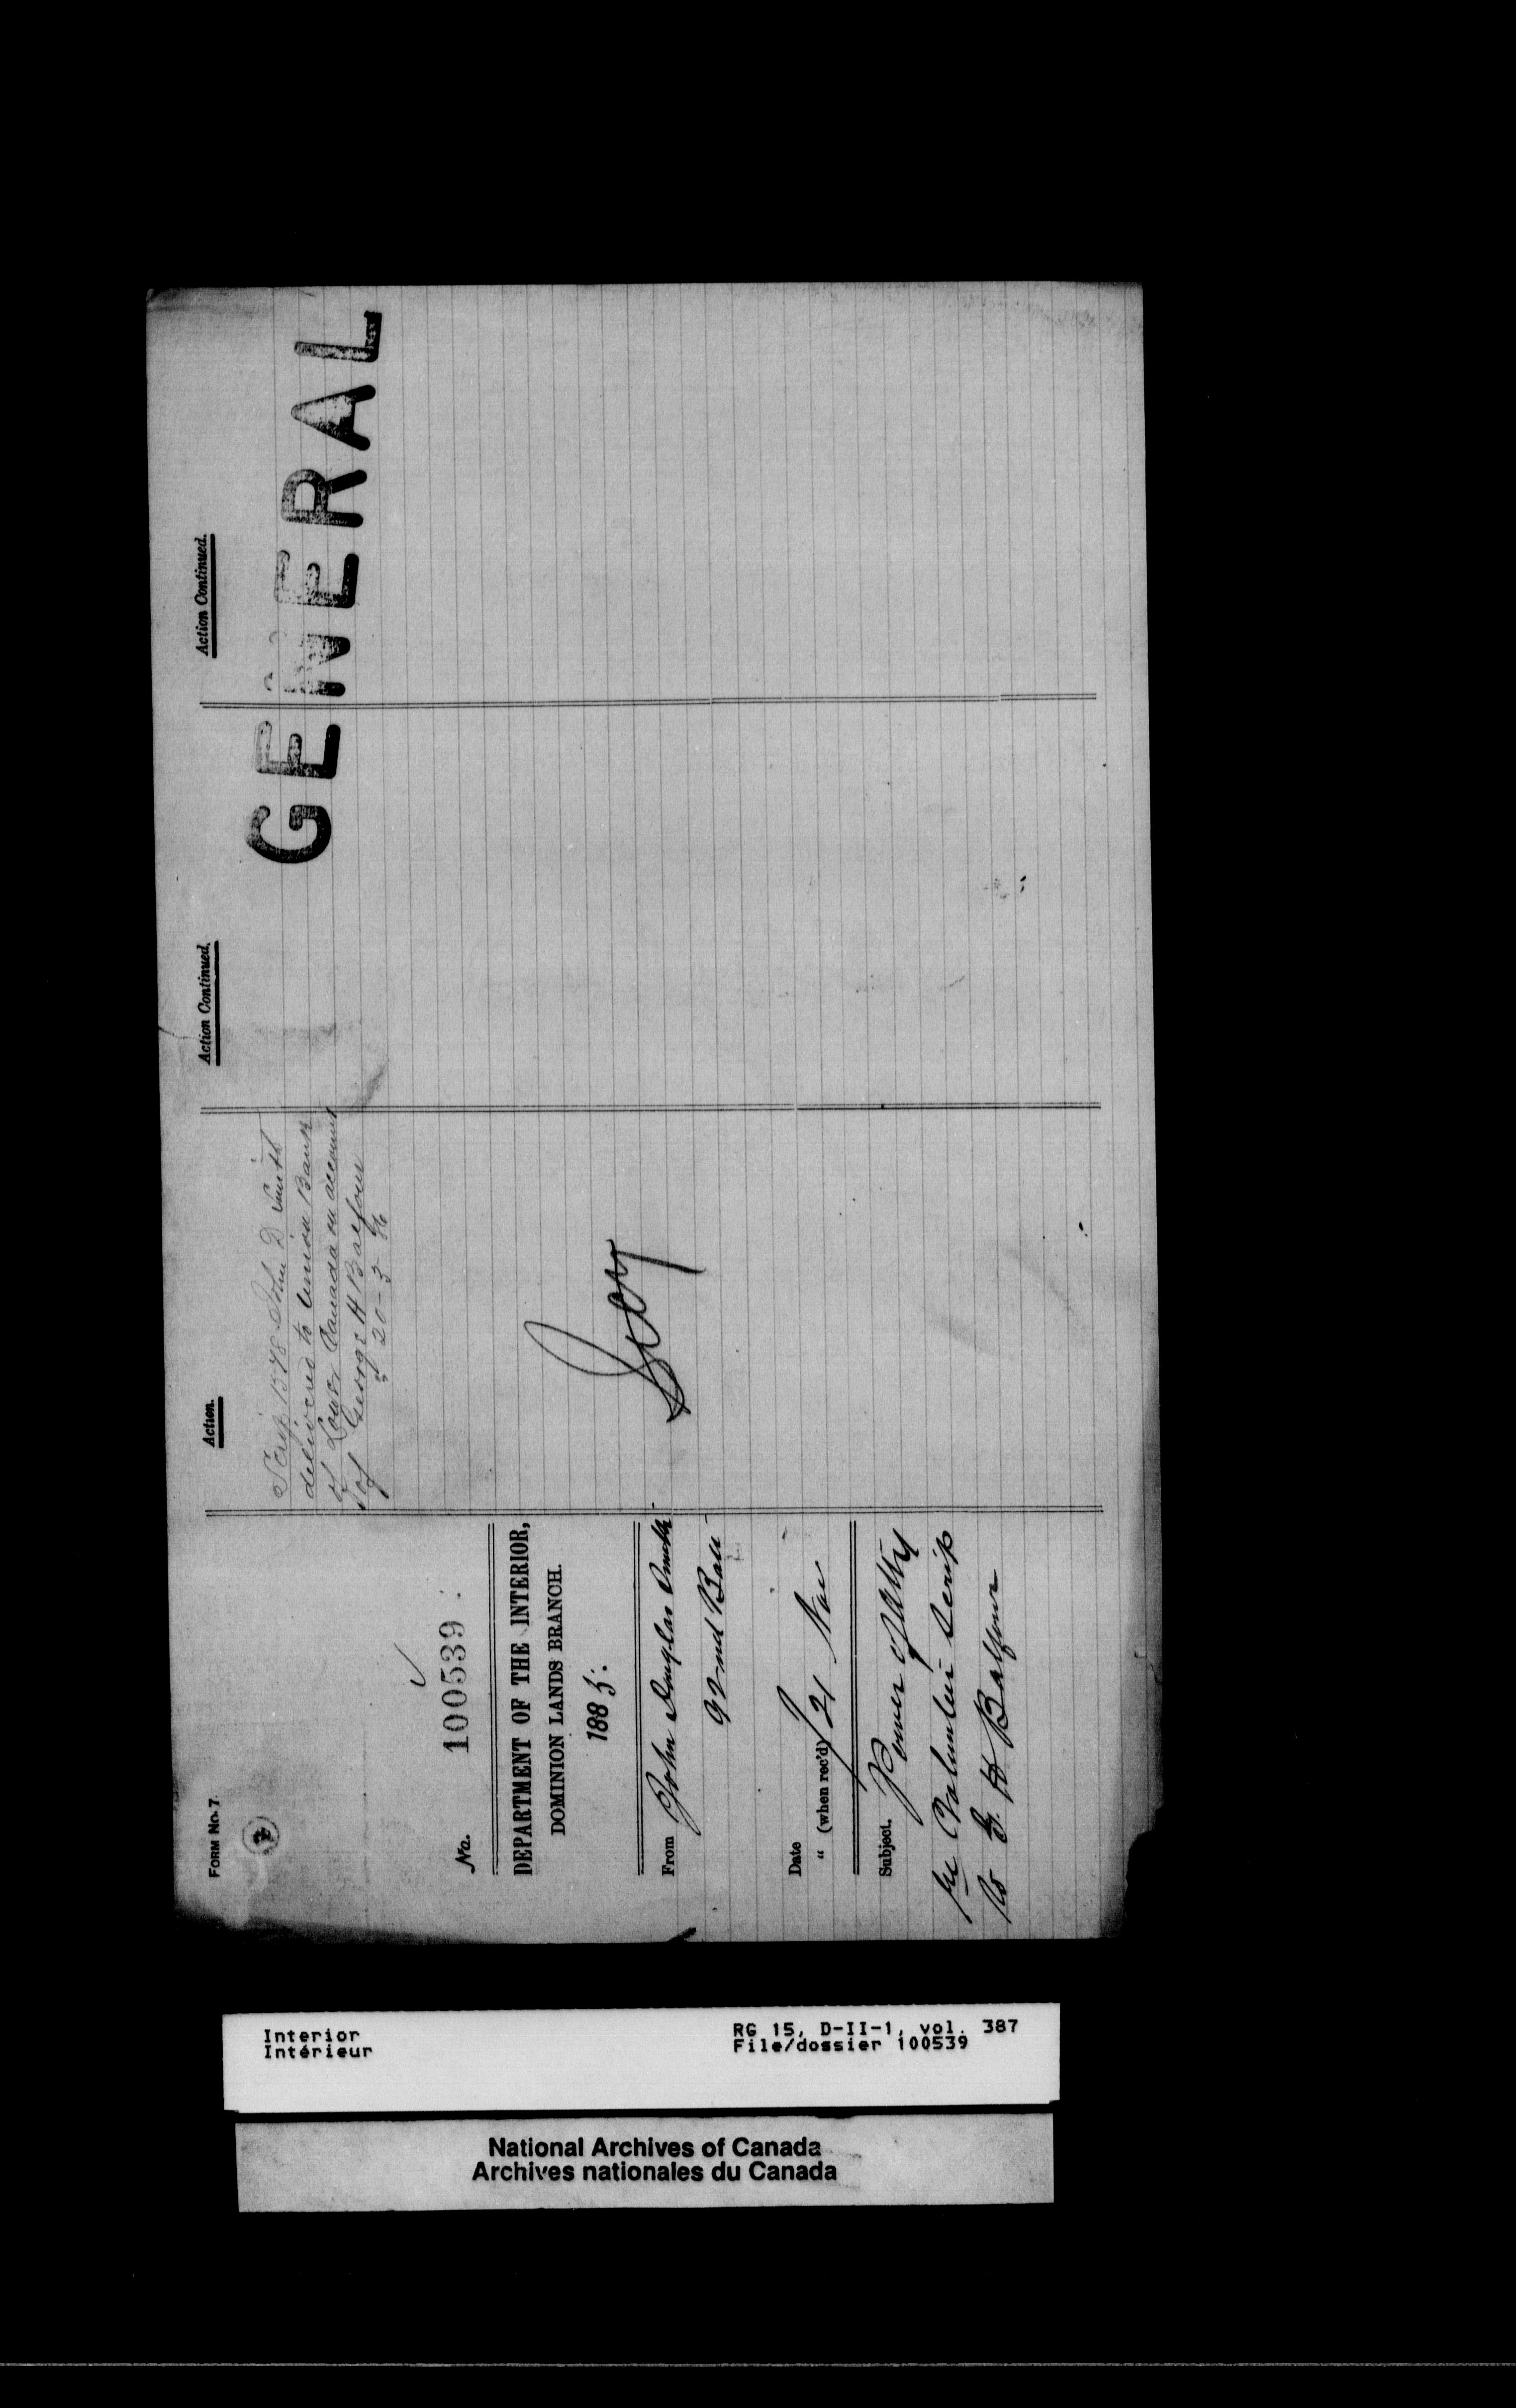 FORM No. 7.
No. 100539
DEPARTMENT OF THE INTERIOR,
DOMINION LANDS BRANCH.
1885.
From John Douglas Smith
92nd Batt
Date
" (when rec'd) 21 Nov
Subject. Power of Atty
re Volunteer Scrip
to G. H Balfour
Action.
Scrip 1578 John D Smith
delivered to Union Bank
of Lower Canada on account
of George H Balfour
20-3-86
Action Continued.
Action Continued.
GENERAL
Interior
Intérieur
RG 15, D-II-1, vol. 387
File/dossier 100539
National Archives of Canada
Archives nationales du Canada